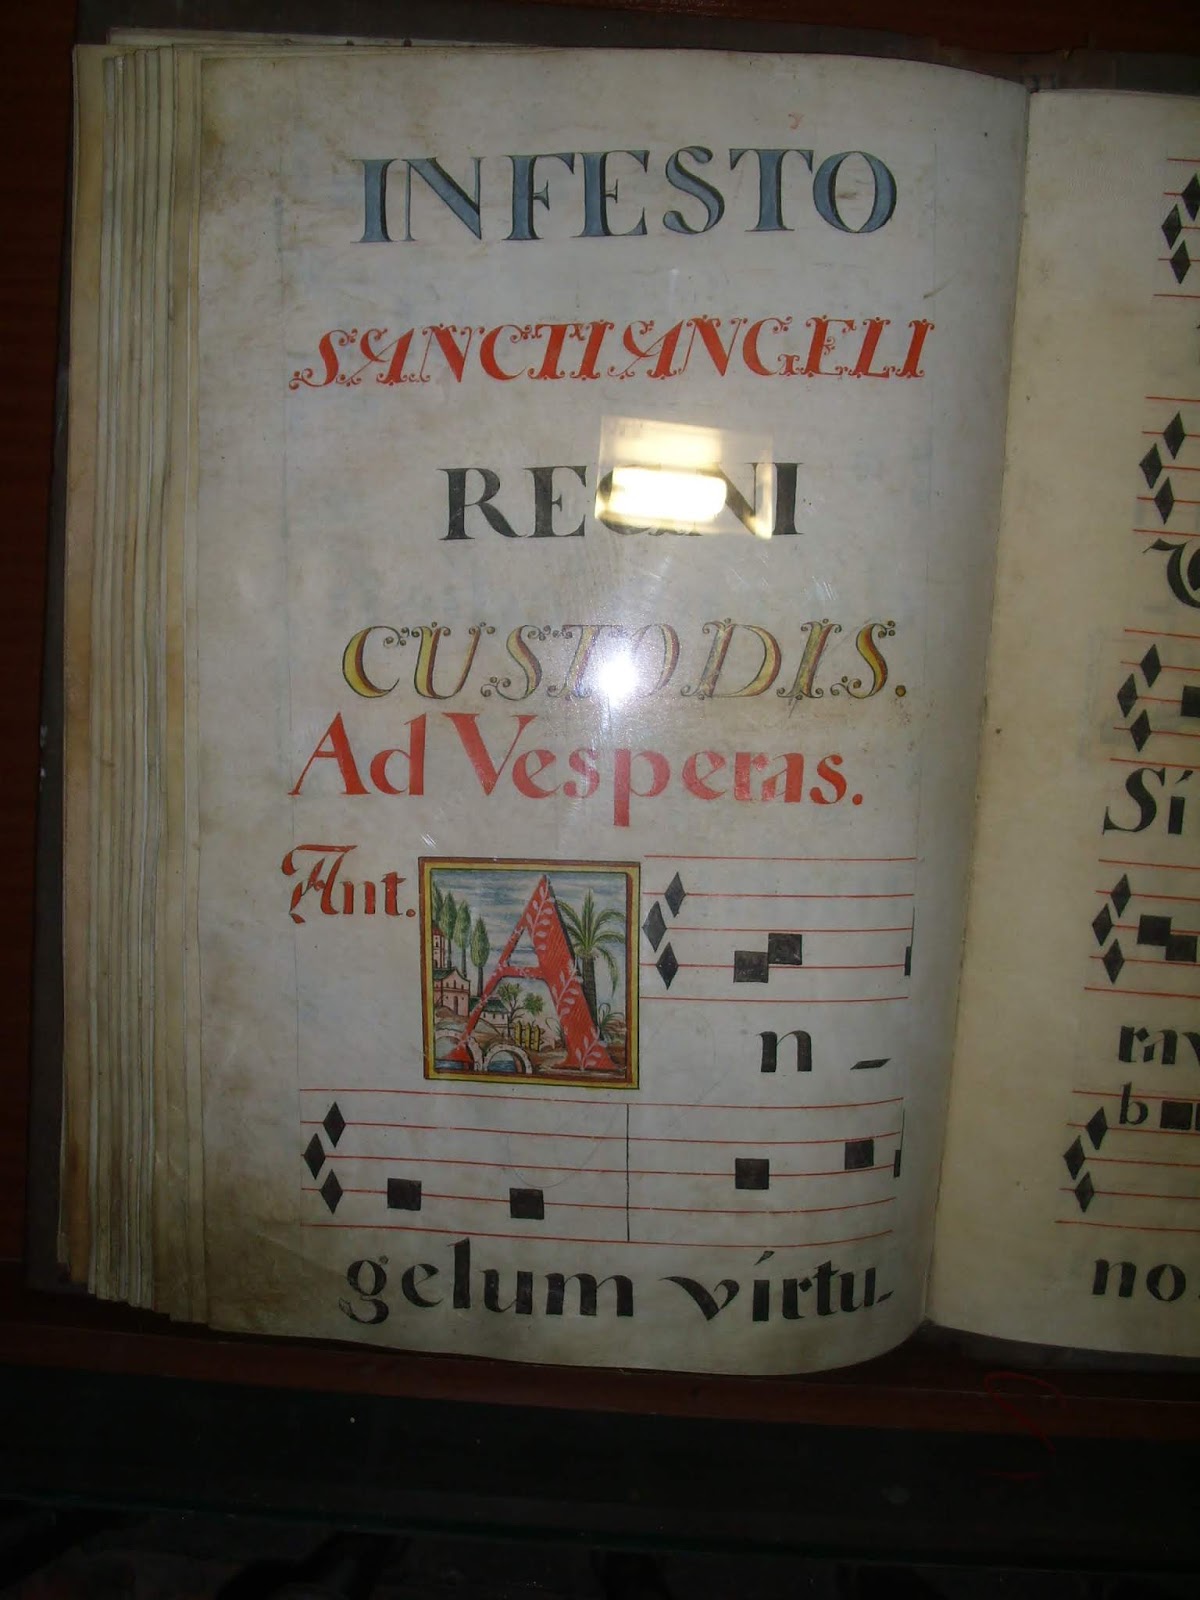 IN FESTO
SANCTI ANGELI
REGNI
CUSTODIS.
Ad Vesperas.
Ant.
An-
gelum virtu-
Sí
b
no